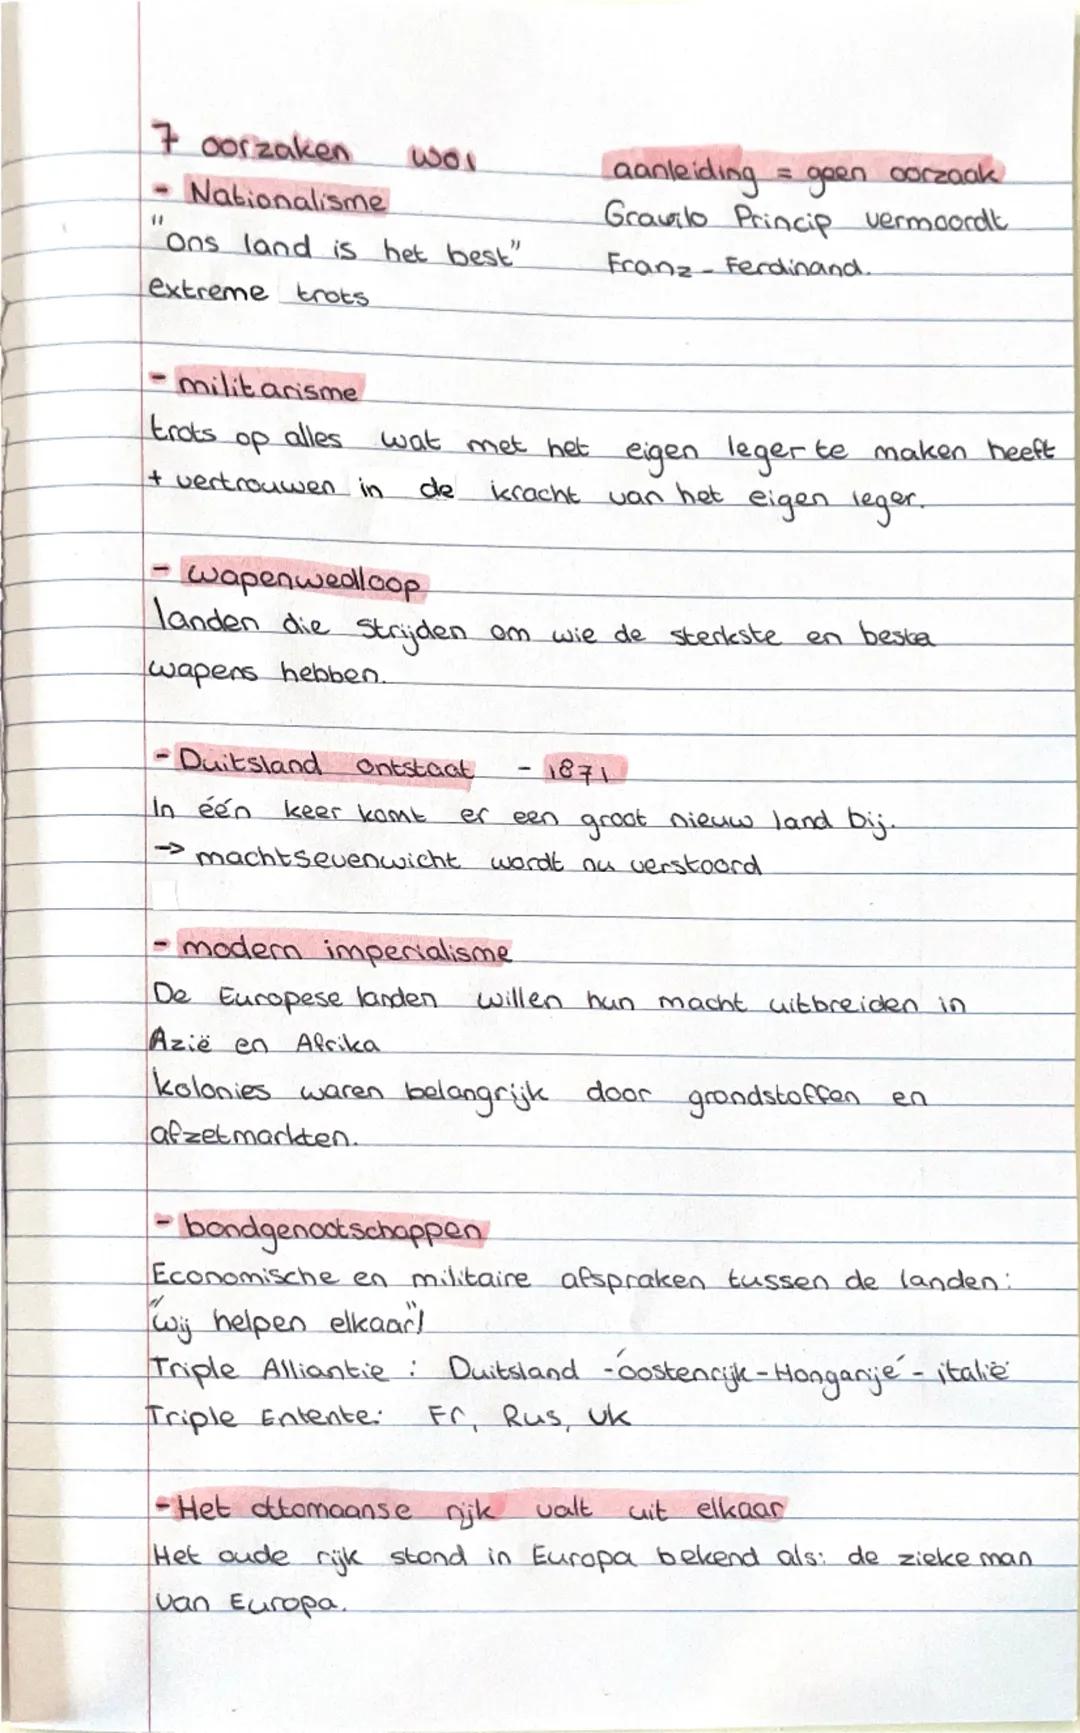 7 oorzaken WO1
- Nationalisme
"ons land is het best"
extreme trots
aanleiding = geen oorzaak
Gravilo Princip vermoordt
Franz - Ferdinand.
- militarisme
trots op alles wat met het eigen leger te maken heeft
+ vertrouwen in de kracht van het eigen leger.
- wapenwedloop
landen die strijden om wie de sterkste en beste
wapens hebben.
- Duitsland ontstaat - 1871
In één keer komt er een groot nieuw land bij.
→ machtsevenwicht wordt nu verstoord
- modern imperialisme
De Europese landen willen hun macht uitbreiden in
Azië en Afrika
kolonies waren belangrijk door grondstoffen en
afzetmarkten.
- bondgenootschappen
Economische en militaire afspraken tussen de landen:
"wij helpen elkaar"!
Triple Alliantie : Duitsland - oostenrijk - Hongarije - italië
Triple Entente: Fr, Rus, UK
- Het ottomaanse rijk valt uit elkaar
Het oude rijk stond in Europa bekend als: de zieke man
van Europa.